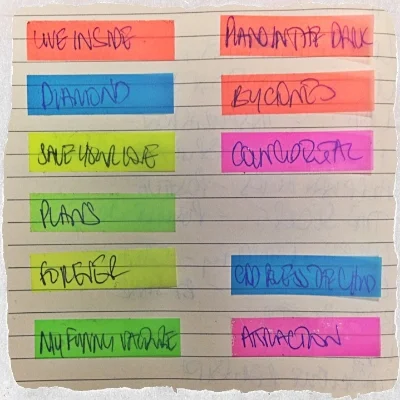 LIVE INSIDE
PIANO IN THE DARK
DIAMOND
BYGONES
SAVE YOUR LOVE
PLANS
FOREVER
GOD BLESS THE CHILD
MY FUNNY VALENTINE
ATTRACTION